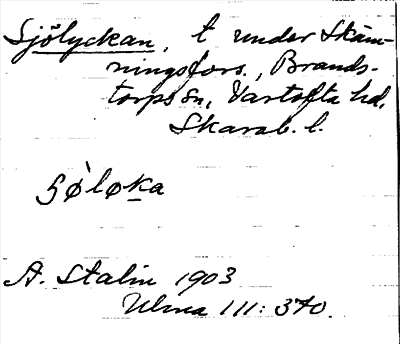 Sjölyckan, t under Skäm-
ningsfors., Brands-
torps sn, Vartofta hd,
Skarab. l.
sø̀løka
A. Stalin 1903
Ulma 111: 370.